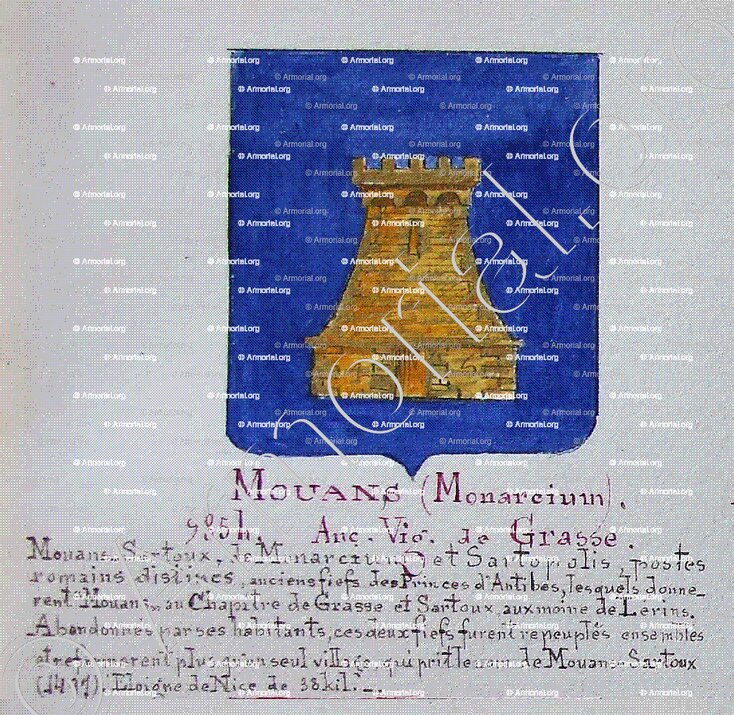 MOUANS (Monarcium).
985h. Anc. Vig. de Grasse.
Mouans Sartoux, de Monarcium et Sartopolis, postes
romains distincs, anciens fiefs des Princes d'Antibes, lesquels donne-
rent Mouans au Chapitre de Grasse et Sartoux aux moine de Lerins.
Abandonnes par ses habitants, ces deux fiefs furent repeuplés ensembles
et ne plus seul village qui prit le nom de Mouans-Sartoux
Eloigne de Nice de 38 kil.
© Armorial.org
Armorial.org